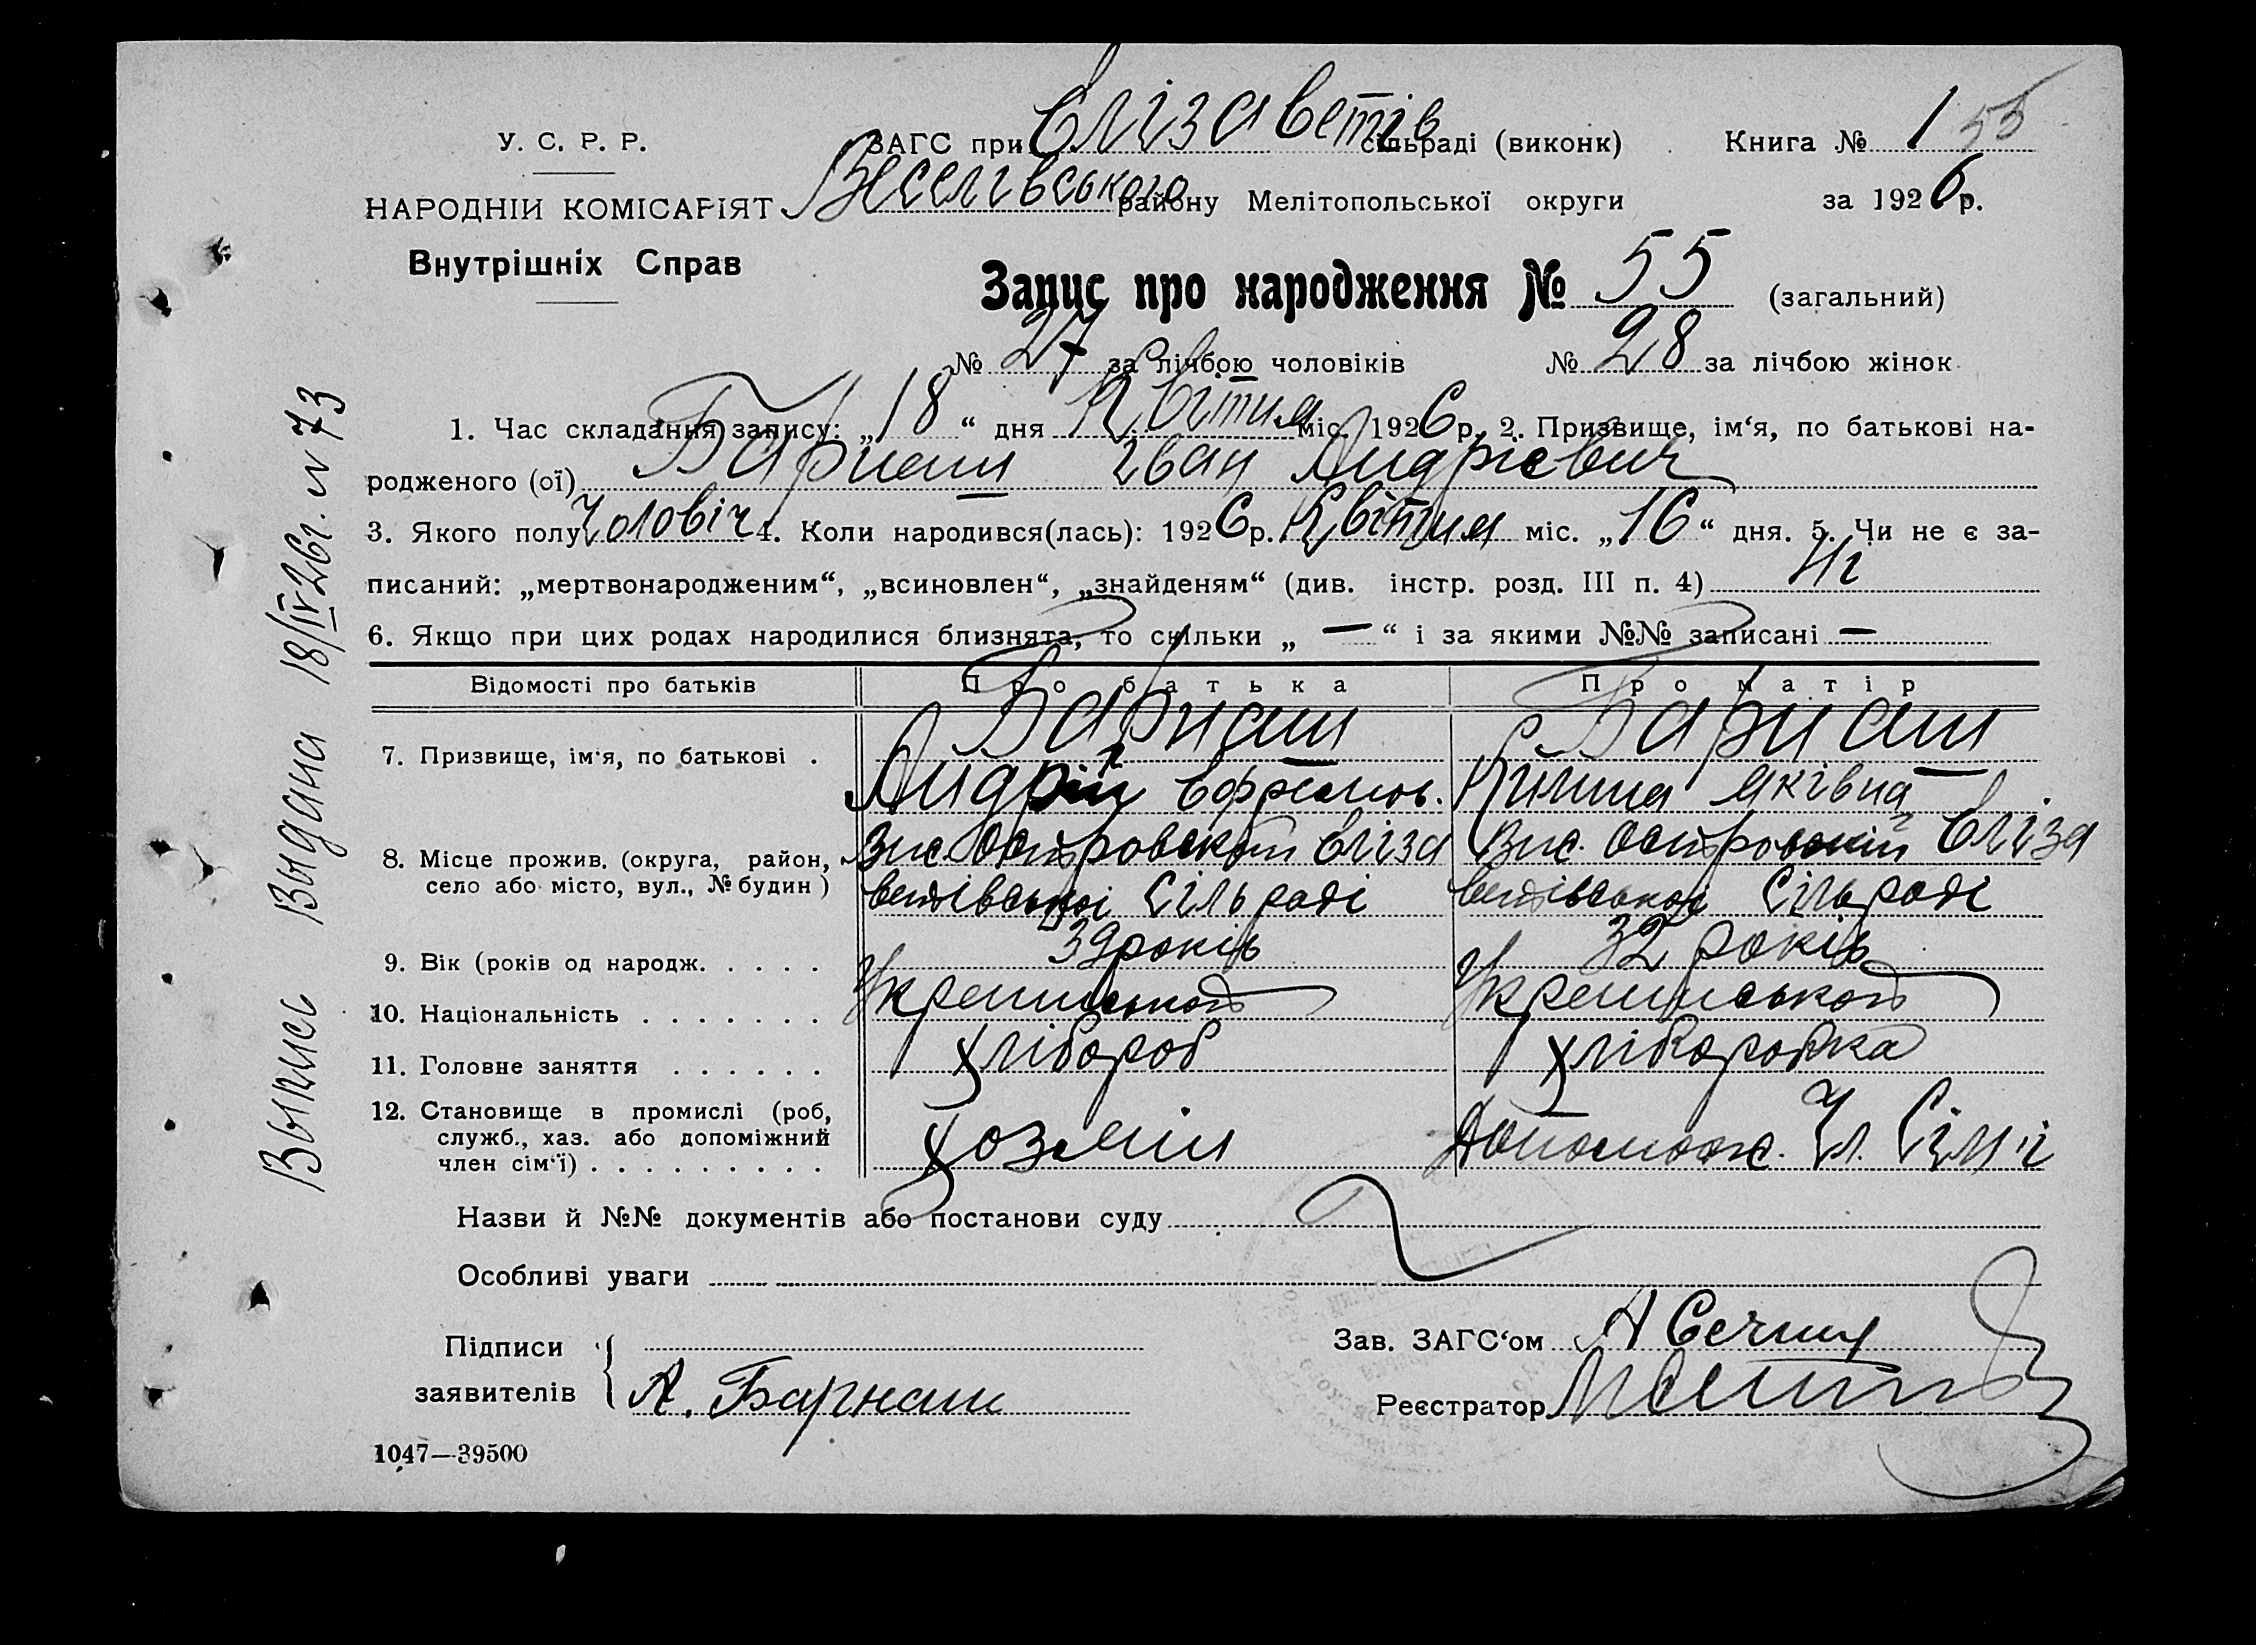 У. С. Р. Р.
НАРОДНІЙ КОМІСАРІЯТ
Внутрішніх Справ
ЗАГС при Єлізаветів сільраді (виконк) Книга № 1 55
Веселівського району Мелітопольської округи за 1926 р.
Запис про народження № 55 (загальний)
№ 27 за лічбою чоловіків № 28 за лічбою жінок
1. Час складання запису: „18“ дня Квітня міс. 1926 р. 2. Призвище, ім‘я, по батькові на-
родженого (ої) Барнаш Іван Андрієвич
3. Якого полу Чоловіч 4. Коли народився(лась): 1926 р. Квітня міс. „16“ дня. 5. Чи не є за-
писаний: „мертвонародженим“, „всиновлен“, „знайденям“ (див. інстр. розд. III п. 4) Ні
6. Якщо при цих родах народилися близнята, то скільки „ — “ і за якими №№ записані —
Відомості про батьків Про батька Про матір
7. Призвище, ім‘я, по батькові . Барнаш Барнаш
Андрій Єфремов. Яківна
8. Місце прожив. (округа, район, Вис. Островский Єліза Вис. Островский Єліза
село або місто, вул., № будин ) ветівської Сільраді ветівської Сільраді
9. Вік (років од народж. . . . . 39 років 32 років
10. Національність . . . . . . .
11. Головне заняття . . . . . . хлібороб хліборобка
12. Становище в промислі (роб,
служб., хаз. або допоміжний
член сім‘ї) . . . . . . . . . Хозяїн Допомож. Чл. Сімʼї
Назви й №№ документів або постанови суду
Особливі уваги
Підписи
заявителів А. Барнаш
Зав. ЗАГС‘ом
Реєстратор
1047—39500
Выпись Выдана 18/IV 26г. № 73